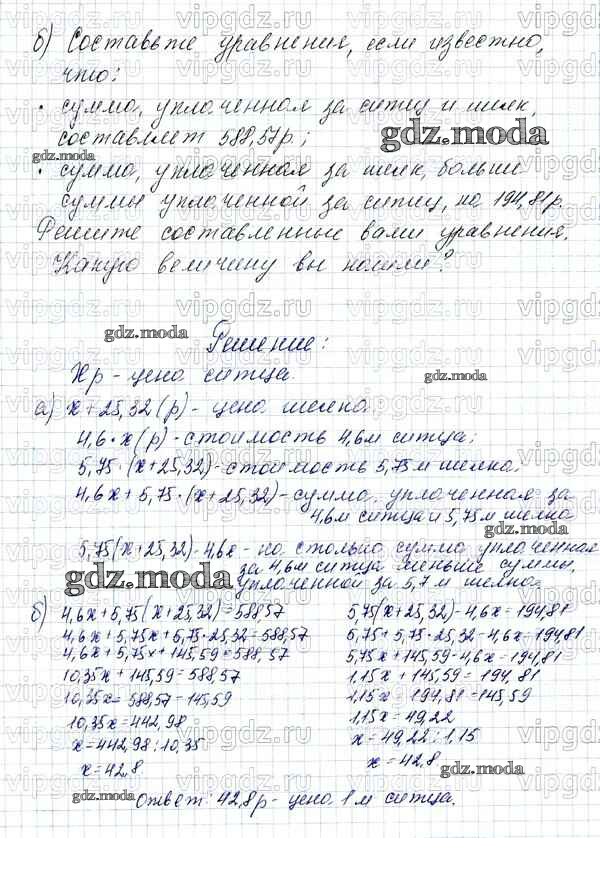 б) Составьте уравнения, если известно,
что:
• сумма, уплаченная за ситец и шелк,
составляет 588,57р.;
• сумма, уплаченная за шелк, больше
суммы уплаченной за ситец, на 194,81р.
Решите составленные вами уравнения.
Какую величину вы нашли?
Решение:
Xр - цена ситца.
а) x + 25,32 (р) - цена шелка.
4,6 · x (р) - стоимость 4,6м ситца;
5,75 · (x+25,32) - стоимость 5,75м шелка;
4,6x + 5,75 · (x+25,32) - сумма, уплаченная за
4,6м ситца и 5,75 м шелка
5,75(x+25,32) - 4,6x - на столько сумма уплаченная
за 4,6м ситца меньше суммы,
уплаченной за 5,7 м шелка.
б) 4,6x + 5,75(x+25,32) = 588,57
4,6x + 5,75x + 5,75·25,32 = 588,57
4,6x + 5,75x + 145,59 = 588,57
10,35x + 145,59 = 588,57
10,35x = 588,57 - 145,59
10,35x = 442,98
x = 442,98 : 10,35
x = 42,8.
5,75(x+25,32) - 4,6x = 194,81
5,75 + 5,75·25,32 - 4,6x = 194,81
5,75x + 145,59 - 4,6x = 194,81
1,15x + 145,59 = 194,81
1,15x = 194,81 - 145,59
1,15x = 49,22
x = 49,22 : 1,15
x = 42,8
Ответ: 42,8р - цена 1м ситца.
gdz.moda
gdz.moda
gdz.moda
gdz.moda
gdz.moda
gdz.moda
gdz.moda
vipgdz.ru